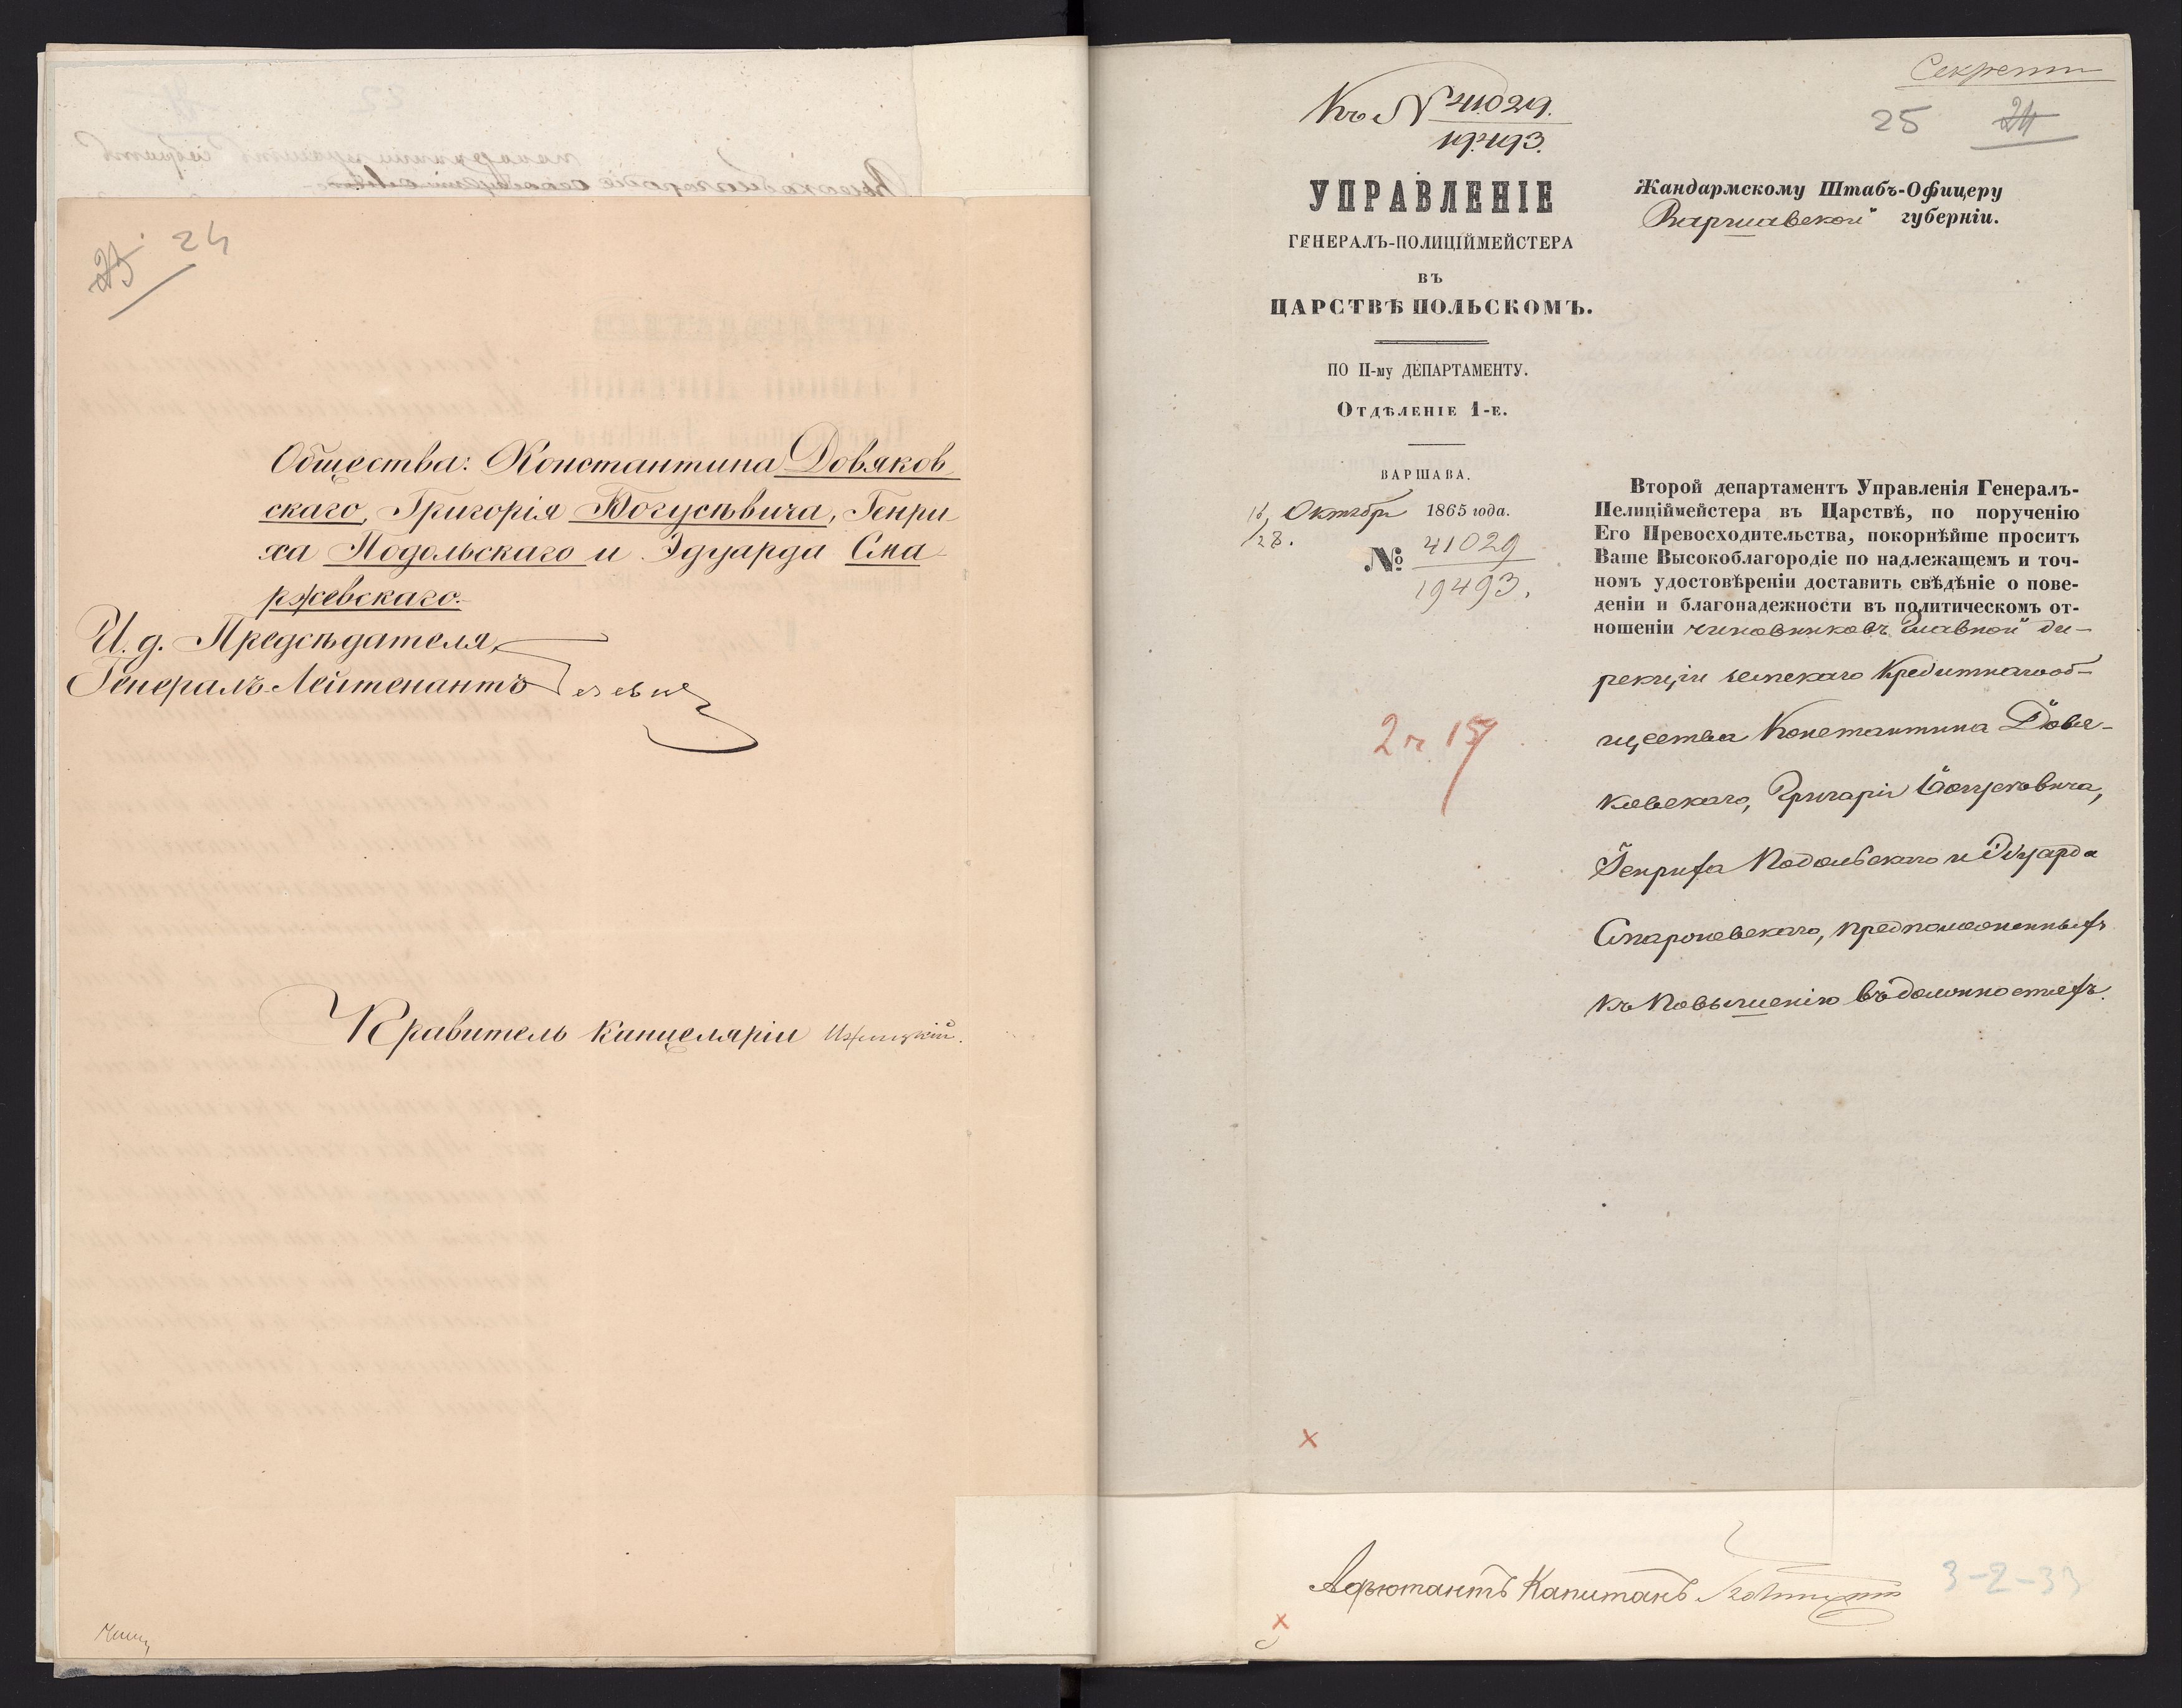 24
Общества: Константина Довяков
скаго, Григорія Богусѣвича, Генри
ха Подольскаго и Эдуарда Ска
ржевскаго.
И. д. Предсѣдателя,
Генералъ-Лейтенантъ
Правитель канцеляріи
Секретн
25 24
Къ № 41029.
19493.
УПРАВЛЕНІЕ
ГЕНЕРАЛЪ-ПОЛИЦІЙМЕЙСТЕРА
ВЪ
ЦАРСТВѢ ПОЛЬСКОМЪ.
ПО II-му ДЕПАРТАМЕНТУ.
Отдѣленіе 1-е.
ВАРШАВА.
16/28. Октября 1865 года.
№ 41029
19493.
Жандармскому Штабъ-Офицеру
Варшавской губерніи.
Второй департаментъ Управленія Генералъ-
Пелиціймейстера въ Царствѣ, по порученію
Его Превосходительства, покорнѣйше проситъ
Ваше Высокоблагородіе по надлежащемъ и точ-
номъ удостовѣреніи доставить свѣдѣніе о пове-
деніи и благонадежности въ политическомъ от-
ношеніи чиновниковъ Главной Ди-
рекціи земскаго Кредитнаго об-
щества Константина Довя-
ковскаго, Григорія Богусѣвича,
Генриха Подольскаго и Эдуарда
Скаржевскаго, предположенныхъ
къ повышенію въ должностяхъ.
Адъютантъ Капитанъ
3-2-33